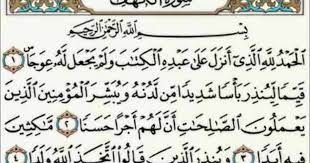 سورة الكهف
بِسْمِ اللَّهِ الرَّحْمَٰنِ الرَّحِيمِ
الْحَمْدُ لِلَّهِ الَّذِي أَنزَلَ عَلَىٰ عَبْدِهِ الْكِتَابَ وَلَمْ يَجْعَل لَّهُ عِوَجًا ١
قَيِّمًا لِّيُنذِرَ بَأْسًا شَدِيدًا مِّن لَّدُنْهُ وَيُبَشِّرَ الْمُؤْمِنِينَ الَّذِينَ
يَعْمَلُونَ الصَّالِحَاتِ أَنَّ لَهُمْ أَجْرًا حَسَنًا ٢ مَّاكِثِينَ
فِيهِ أَبَدًا ٣ وَيُنذِرَ الَّذِينَ قَالُوا اتَّخَذَ اللَّهُ وَلَدًا ٤